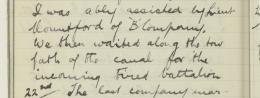 I was ably assisted by Lieut
Mountford of "B" Company.
We then waited along the tow
path of the canal for the
incoming tired battalion
22nd The last company mar-